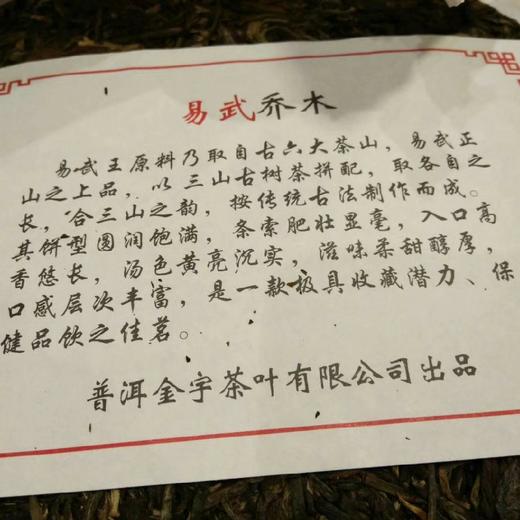 易武乔木
易武王原料乃取自古六大茶山，易武正
山之上品，以三山古树茶拼配，取各自之
长，合三山之韵，按传统古法制作而成。
其饼型圆润饱满，条索肥壮显毫，入口高
香悠长，汤色黄亮沉实，滋味柔甜醇厚，
口感层次丰富，是一款极具收藏潜力、保
健品饮之佳茗。
普洱金宇茶叶有限公司出品